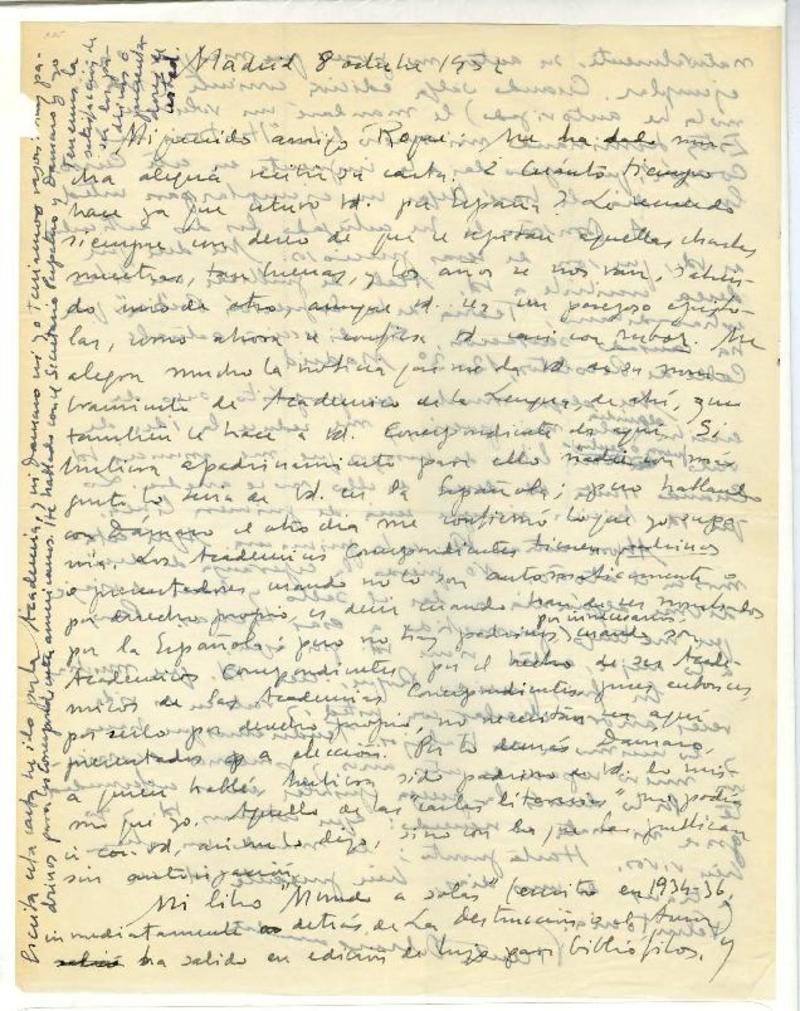 Madrid 8 octubre 1952
Mi querido amigo Roque: Me ha dado mu-
cha alegría recibir su carta. ¿Cuánto tiempo
hace ya que estuvo Vd. por España? Lo recuerdo
siempre, con deseo de que se repitan aquellas charlas
nuestras, tan buenas, y los años se nos van,
do uno de otro, aunque Vd. es un perezoso episto-
lar, como ahora se confiesa Vd. casi con rubor. Me
alegra mucho la noticia que me da Vd. de su nom-
bramiento de Académico de la Lengua, de ahí, que
también le hace a Vd. Correspondiente de aquí. Si
hubiera apadrinamiento para ello nadie con más
gusto lo sería de Vd. en la Española; pero hablando
con Dámaso el otro día me confirmó lo que yo supo-
nía. Los Académicos Correspondientes tienen padrinos
o presentadores, cuando no lo son automáticamente o
por derecho propio, es decir cuando han de ser nombrados
por la Española; pero no hay padrinos cuando son
Académicos Correspondientes por el hecho de ser Acadé-
micos de las Academias Correspondientes, pues entonces,
por serlo por derecho propio, no necesitan ser aquí
presentados a elección. Por lo demás, Dámaso,
a quien hablé, hubiera sido padrino de Vd. lo mis-
mo que yo. Aquello de las "cartas literarias" no podía
ir con Vd., sino con los que las publican
sin autorización.
Mi libro "Mundo a solas" (escrito en 1934-36,
inmediatamente detrás de La Destrucción o el Amor)
ha salido en edición de lujo para bibliófilos, y
Escrita esta carta, he ido por la Academia, y ni Dámaso ni yo teníamos razón: hay pa-
drinos para los Correspondientes americanos. He hablado con el Secretario Perpetuo y Dámaso y yo
tenemos la
satisfacción de
ser los pa-
drinos o
presenta-
dores de
usted.